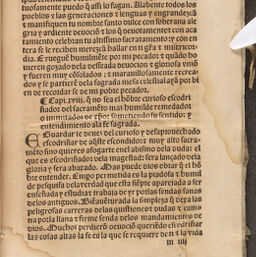 tuosamente puedo q̃ assi lo fagan. Alabente todos los
pueblos z las generaciones z lenguas z engrandezcã
z manifiquen tu nombre santo dulce con soberana ale
gria z ardiente deuociõ z los q̃ deuotamente z con aca
tamiento celebran tu altissimo sacramento: z con en
tera fe le reciben merezcã hallar en ti gr̃a z misericor
dia. E ruegue humilmẽte por mi pecador: z quãdo ho
uieren gozado dela desseada deuocion z gloriosa vniõ
y fueren muy cõsolados: z marauillosamente recrea
dos y se partierẽ dela sagrada mesa celestial ayã por bi
en de recordar se de mi pobre pecador.
¶ Capi. xviij. q̃ no sea el hõbre curioso escodri
ñador del sacramẽto mas humilde remedador
o immitador de xp̃o: sometiendo su sentido: y
entendimiento ala fe sagrada.
Guardar te deues del curioso y desaprouechado
escodriñar de aq̃ste escondidoso muy alto sacra
mẽto sino quieres afogarte enel abismo dela duda: el
que es escodriñador dela magestad: sera lançado dela
gloria y sera abatido. Mas puede dios obrar q̃ el hõ
bre entender. Empo permetida es la piadosa z humil
de pesquisa dela verdad que esta siẽpre aparejada a ser
enseñada y estudia trabaja de yr por las sendas sanas
delos antiguos. Biẽauẽturada la simpleza q̃ dexa las
peligrosas carreras delas questiones z dudas: z cami
na por la llana z firme senda delos mandamientos de
dios. Muchos perdierõ deuociõ queriẽdo escodriñar
las cosas altas la fe es la que se requiere de ti z la vida
m iiij